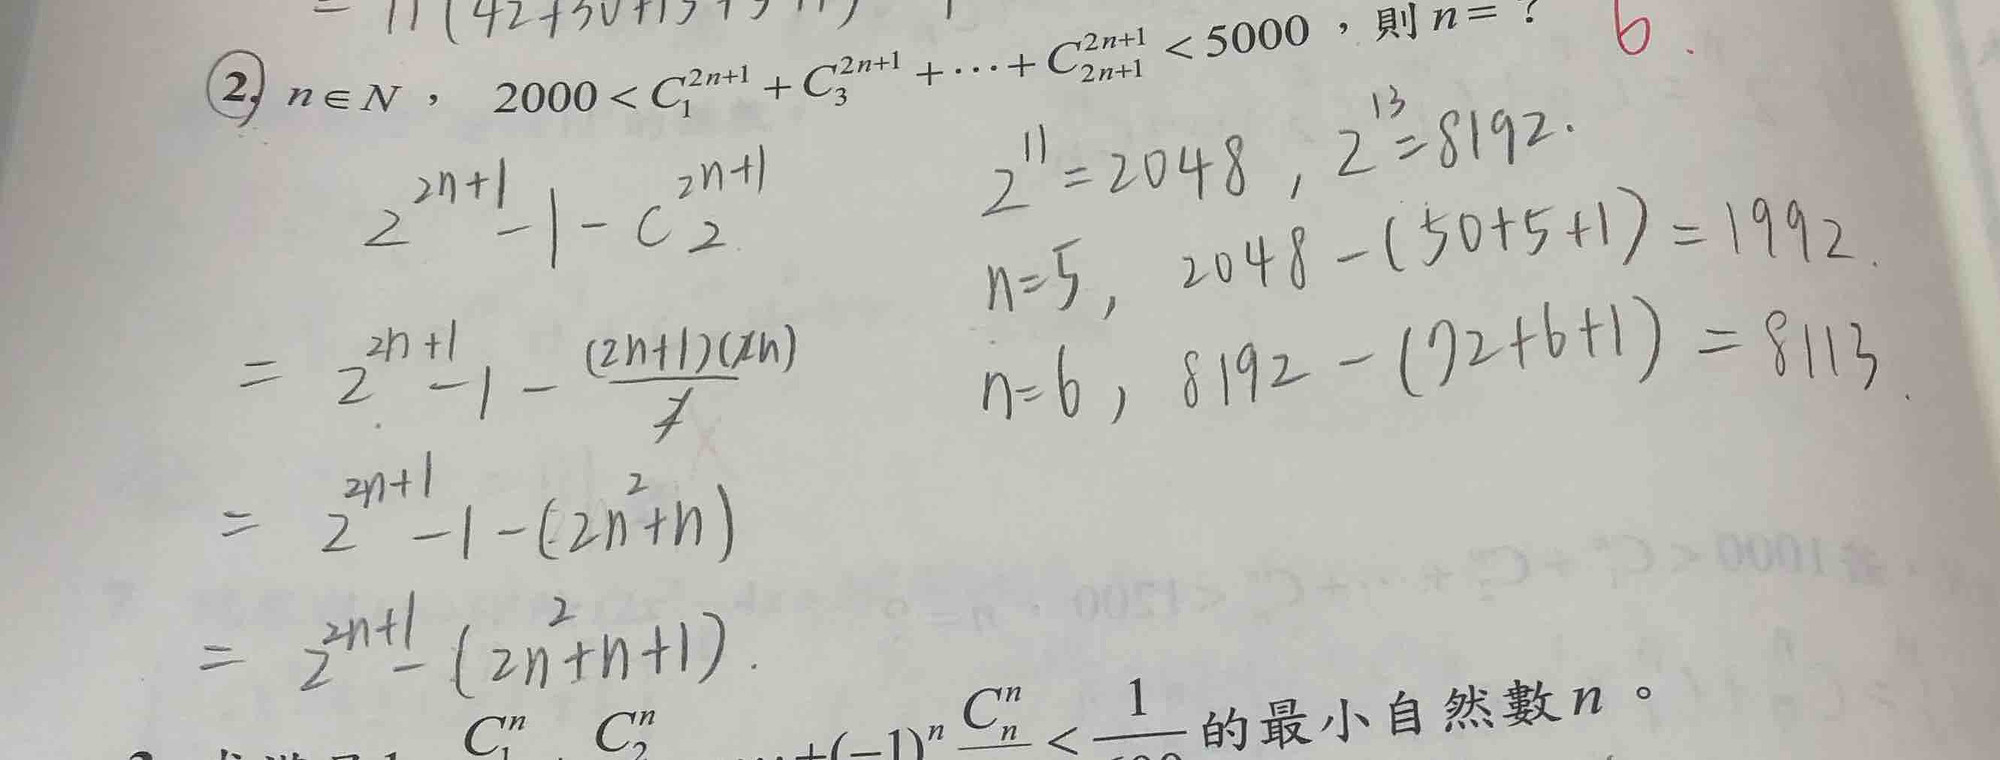 = 11(42+30+15+
2, n∈N， 2000 < C₁²ⁿ⁺¹ + C₃²ⁿ⁺¹ + ⋯ + C₂ₙ₊₁²ⁿ⁺¹ < 5000，則 n = ? 6.
2²ⁿ⁺¹ - 1 - C₂²ⁿ⁺¹
= 2²ⁿ⁺¹ - 1 - (2n+1)(2n)/2
= 2²ⁿ⁺¹ - 1 - (2n²+n)
= 2²ⁿ⁺¹ - (2n²+n+1).
2¹¹ = 2048, 2¹³ = 8192.
n=5, 2048 - (50+5+1) = 1992.
n=6, 8192 - (72+6+1) = 8113.
C₁ⁿ C₂ⁿ +(-1)ⁿ Cₙⁿ < 1 的最小自然數 n。